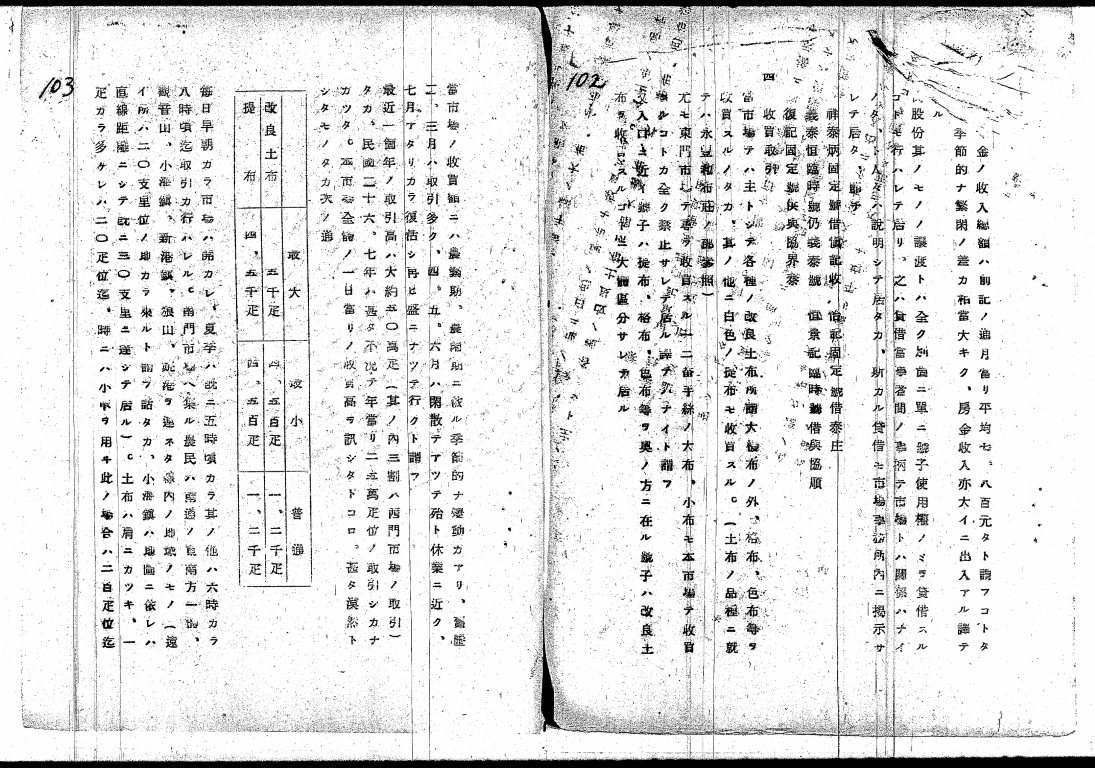 102
金ノ收入總額ハ前記ノ通月當リ平均七、八百元タト謂フコトタ
季節的ナ繁閑ノ差カ相當大キク、房金收入亦大イニ出入アル譯テ
ル
股份其ノモノノ讓渡トハ全ク別個ニ單ニ號子使用權ノミヲ貸借スル
コトモ行ハレテ居リ、之ハ貸借當事者間ノ事柄テ市場トハ關係ハナイ
ノタ、ト人々ハ說明シテ居タカ、斯カル貸借モ市場事務所內ニ揭示サ
レテ居タ
祥泰炳固定號借價記收 怡記固定號借泰庄
義泰恒臨時號仍義泰號 恒景記臨時號借與協順
復記固定號與興協界泰
四 收買取引
當市場テハ主トシテ各種ノ改良土布所謂大機布ノ外、格布、色布等ヲ
收買スルノタカ、其ノ他ニ白色ノ提布モ收買スル。(土布ノ品種ニ就
テハ永豐和布莊ノ部參照)
尤モ東門市ニテ專ラ收買スル一二番手絲ノ大布、小布モ本市場テ收買
スルコトカ全ク禁止サレテ居ル譯テハナイト謂フ
入口ニ近イ號子ハ提布、格布、色布等ヲ奧ノ方ニ在ル號子ハ改良土
布ヲ收買スルコ大體區分サレテ居ル
103
當市場ノ收買額ニハ農繁期、農閑期ニ依ル季節的ナ運動カアリ、舊曆
二、三月ハ取引多ク、四、五、六月ハ閑散テアツテ殆ト休業ニ近ク、
七月アタリカラ復活シ再ヒ盛ニナツテ行クト謂フ
最近一個年ノ取引高ハ大約五〇萬疋(其ノ內三割ハ西門市場ノ取引)
タカ、民國二十六、七年ハ甚タ不況テ年當リ二三萬疋位ノ取引シカナ
カツタ。本市場全體ノ一日當リノ收買高ヲ訊シタトコロ、甚タ漠然ト
シタモノタカ次ノ通
最大 最小 普通
改良土布 四、五千疋 四、五百疋 一、二千疋
提布 四、五千疋 四、五百疋 一、二千疋
每日早朝カラ市場ハ開カレ、夏季ハ既ニ五時頃カラ其ノ他ハ六時カラ
八時頃迄取引カ行ハレル。南門市場へ集ル農民ハ南通ノ東南方一帶、
觀音山、小海鎮、新港鎮、狼山、姚港ヲ連ネタ線內ノ地域ノモノ(遠
イ所ハ二〇支里位ノ地カラ來ルト謂フ話タカ、小海鎮ハ地圖ニ依レハ
直線距離ニシテ既ニ三〇支里ニ達シテ居ル)。土布ハ肩ニカツキ、一
疋カラ多ケレハ二〇疋位迄、時ニハ小車ヲ用キ此ノ場合ハ二百疋位迄